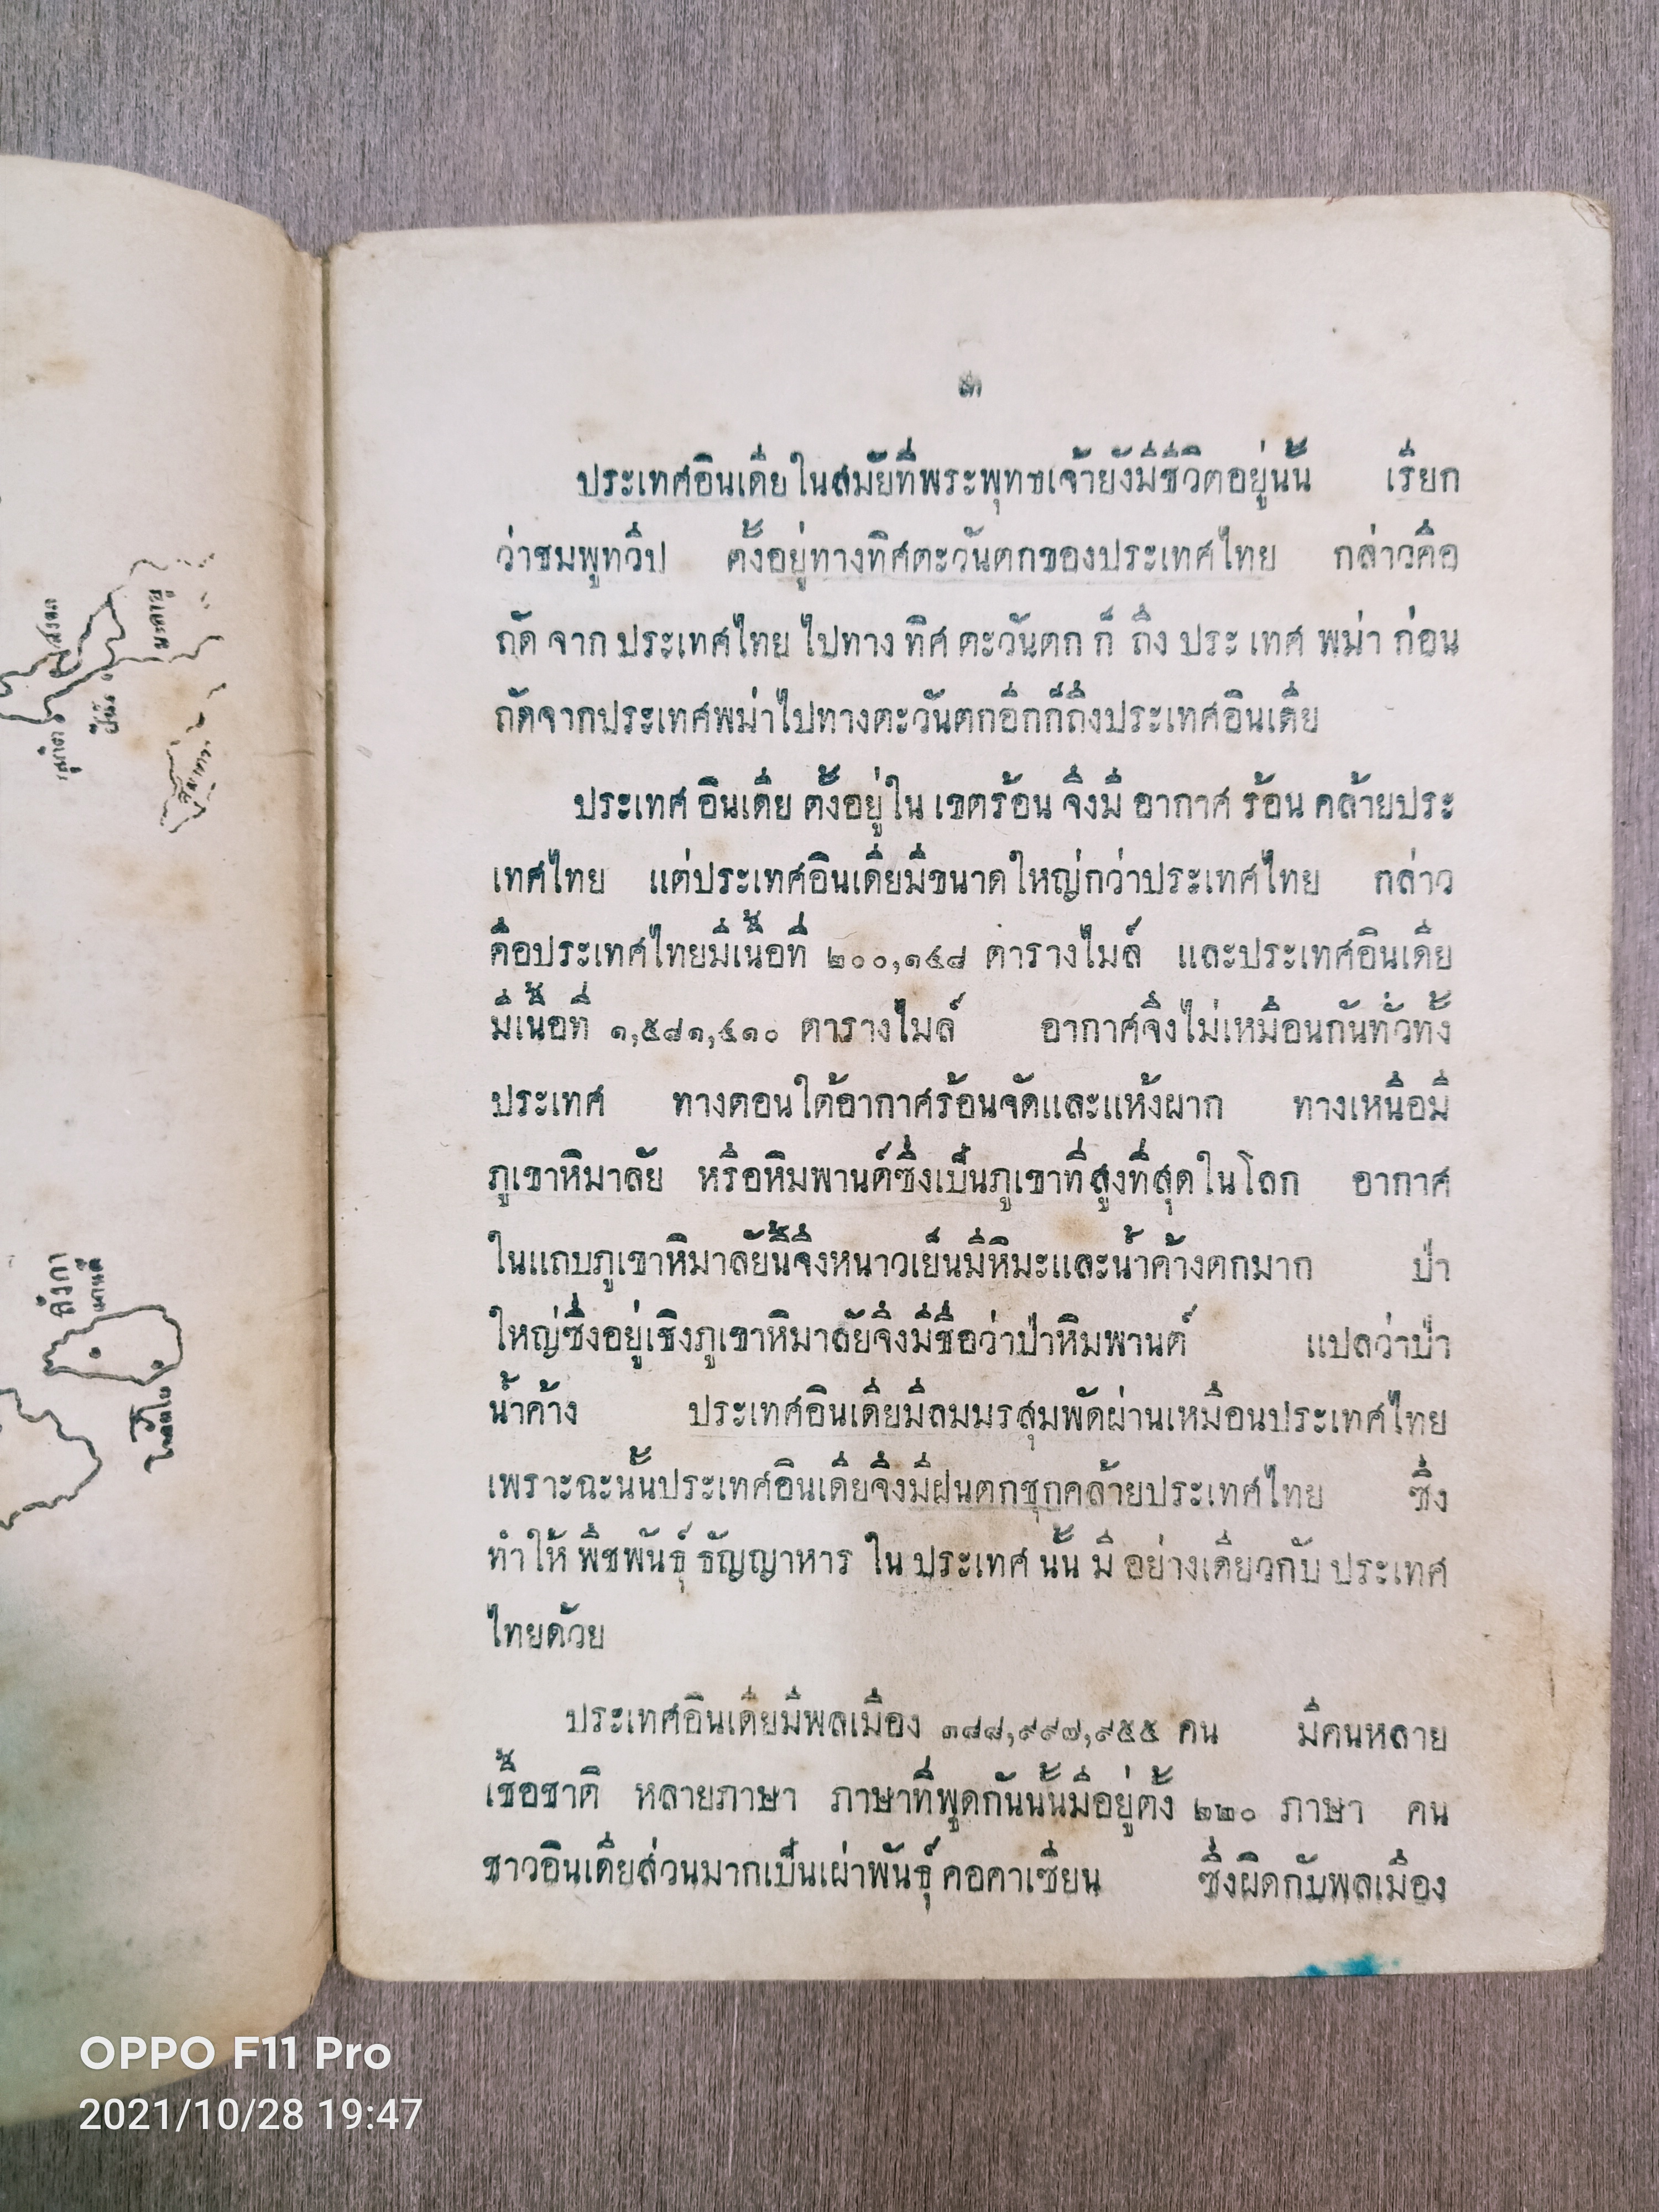 ๓
ประเทศอินเดียในสมัยที่พระพุทธเจ้ายังมีชีวิตอยู่นั้น เรียก
ว่าชมพูทวีป ตั้งอยู่ทางทิศตะวันตกของประเทศไทย กล่าวคือ
ถัด จาก ประเทศไทย ไปทาง ทิศ ตะวันตก ก็ ถึง ประ เทศ พม่า ก่อน
ถัดจากประเทศพม่าไปทางตะวันตกอีกก็ถึงประเทศอินเดีย
ประเทศ อินเดีย ตั้งอยู่ใน เขตร้อน จึงมี อากาศ ร้อน คล้ายประ
เทศไทย แต่ประเทศอินเดียมีขนาดใหญ่กว่าประเทศไทย กล่าว
คือประเทศไทยมีเนื้อที่ ๒๐๐,๑๔๘ ตารางไมล์ และประเทศอินเดีย
มีเนื้อที่ ๑,๕๘๑,๔๑๐ ตารางไมล์ อากาศจึงไม่เหมือนกันทั่วทั้ง
ประเทศ ทางตอนใต้อากาศร้อนจัดและแห้งผาก ทางเหนือมี
ภูเขาหิมาลัย หรือหิมพานต์ซึ่งเป็นภูเขาที่สูงที่สุดในโลก อากาศ
ในแถบภูเขาหิมาลัยนี้จึงหนาวเย็นมีหิมะและน้ำค้างตกมาก ป่า
ใหญ่ซึ่งอยู่เชิงภูเขาหิมาลัยจึงมีชื่อว่าป่าหิมพานต์ แปลว่าป่า
น้ำค้าง ประเทศอินเดียมีลมมรสุมพัดผ่านเหมือนประเทศไทย
เพราะฉะนั้นประเทศอินเดียจึงมีฝนตกชุกคล้ายประเทศไทย ซึ่ง
ทำให้ พืชพันธุ์ ธัญญาหาร ใน ประเทศ นั้น มี อย่างเดียวกับ ประเทศ
ไทยด้วย
ประเทศอินเดียมีพลเมือง ๓๘๘,๙๙๗,๙๕๕ คน มีคนหลาย
เชื้อชาติ หลายภาษา ภาษาที่พูดกันนั้นมีอยู่ตั้ง ๒๒๐ ภาษา คน
ชาวอินเดียส่วนมากเป็นเผ่าพันธุ์ คอคาเซียน ซึ่งผิดกับพลเมือง
ลังกา
OPPO F11 Pro
2021/10/28 19:47